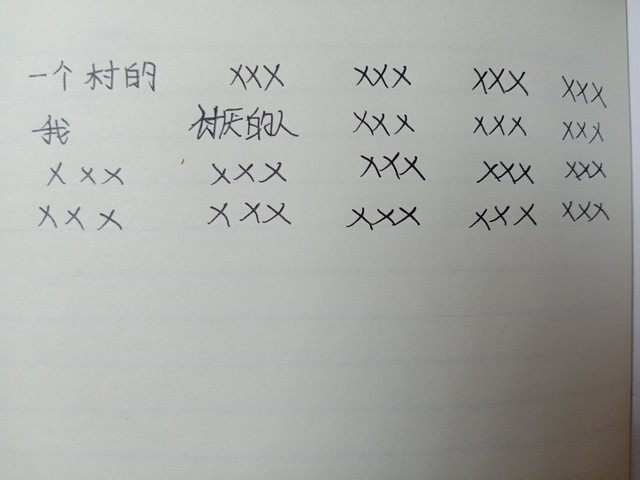 一个村的 xxx xxx xxx xxx
我 讨厌的人 xxx xxx xxx
xxx xxx xxx xxx xxx
xxx xxx xxx xxx xxx